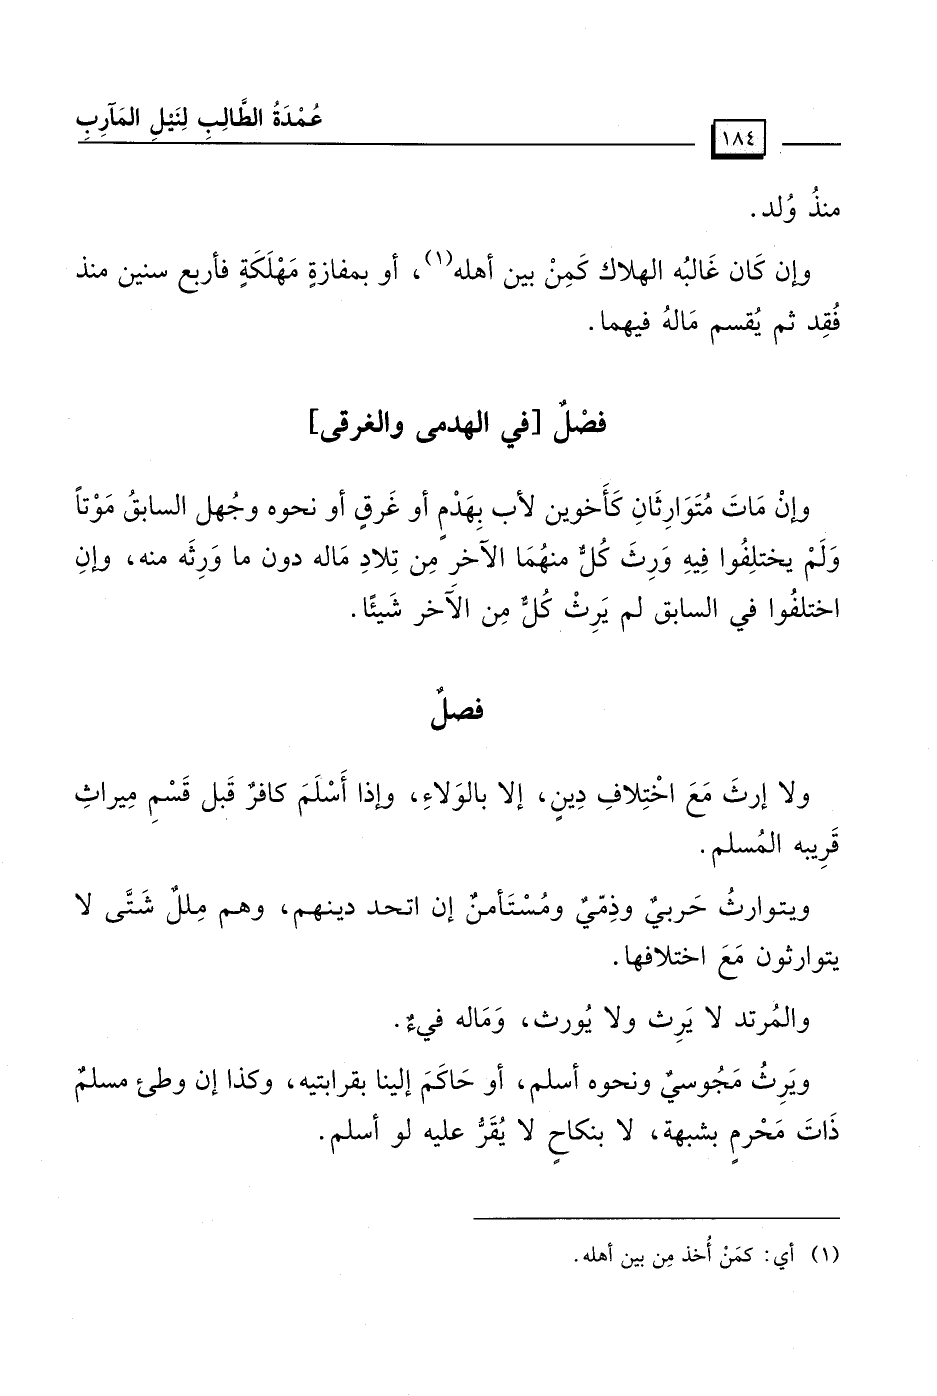 عُمْدَةُ الطَّالِبِ لِنَيْلِ المَآرِبِ
١٨٤
منذُ وُلد.
وإن كَان غَالبُه الهلاك كَمِنْ بين أهله(١)، أو بمفازةٍ مَهْلَكَةٍ فأربع سنين منذ
فُقِد ثم يُقسم مَالهُ فيهما.
فصْلٌ [في الهدمى والغرقى]
وإنْ مَاتَ مُتَوَارِثَانِ كَأَخوين لأب بِهَدْمٍ أو غَرقٍ أو نحوه وجُهل السابقُ مَوْتاً
وَلَمْ يختلِفُوا فِيهِ وَرِثَ كُلٌّ منهُمَا الآخرِ مِن تِلادِ مَاله دون ما وَرِثَه منه، وإنِ
اختلفُوا في السابق لم يَرِثْ كُلٌّ مِن الآَخر شَيئًا.
فصلٌ
ولا إرثَ مَعَ اخْتِلافِ دِينٍ، إلا بالوَلاءِ، وإذا أَسْلَمَ كافرٌ قَبل قَسْمِ مِيراثِ
قَرِيبه المُسلم.
ويتوارثُ حَربيٌ وذِمّيٌ ومُسْتَأمنٌ إن اتحد دينهم، وهم مِللٌ شَتَّى لا
يتوارثون مَعَ اختلافها.
والمُرتد لا يَرِث ولا يُورث، وَمَاله فيءٌ.
ويَرِثُ مَجُوسيٌ ونحوه أسلم، أو حَاكَمَ إلينا بقرابتيه، وكذا إن وطئ مسلمٌ
ذَاتَ مَحْرمٍ بشبهة، لا بنكاحٍ لا يُقَرُّ عليه لو أسلم.
(١) أي: كمَنْ أُخذ مِن بين أهله.